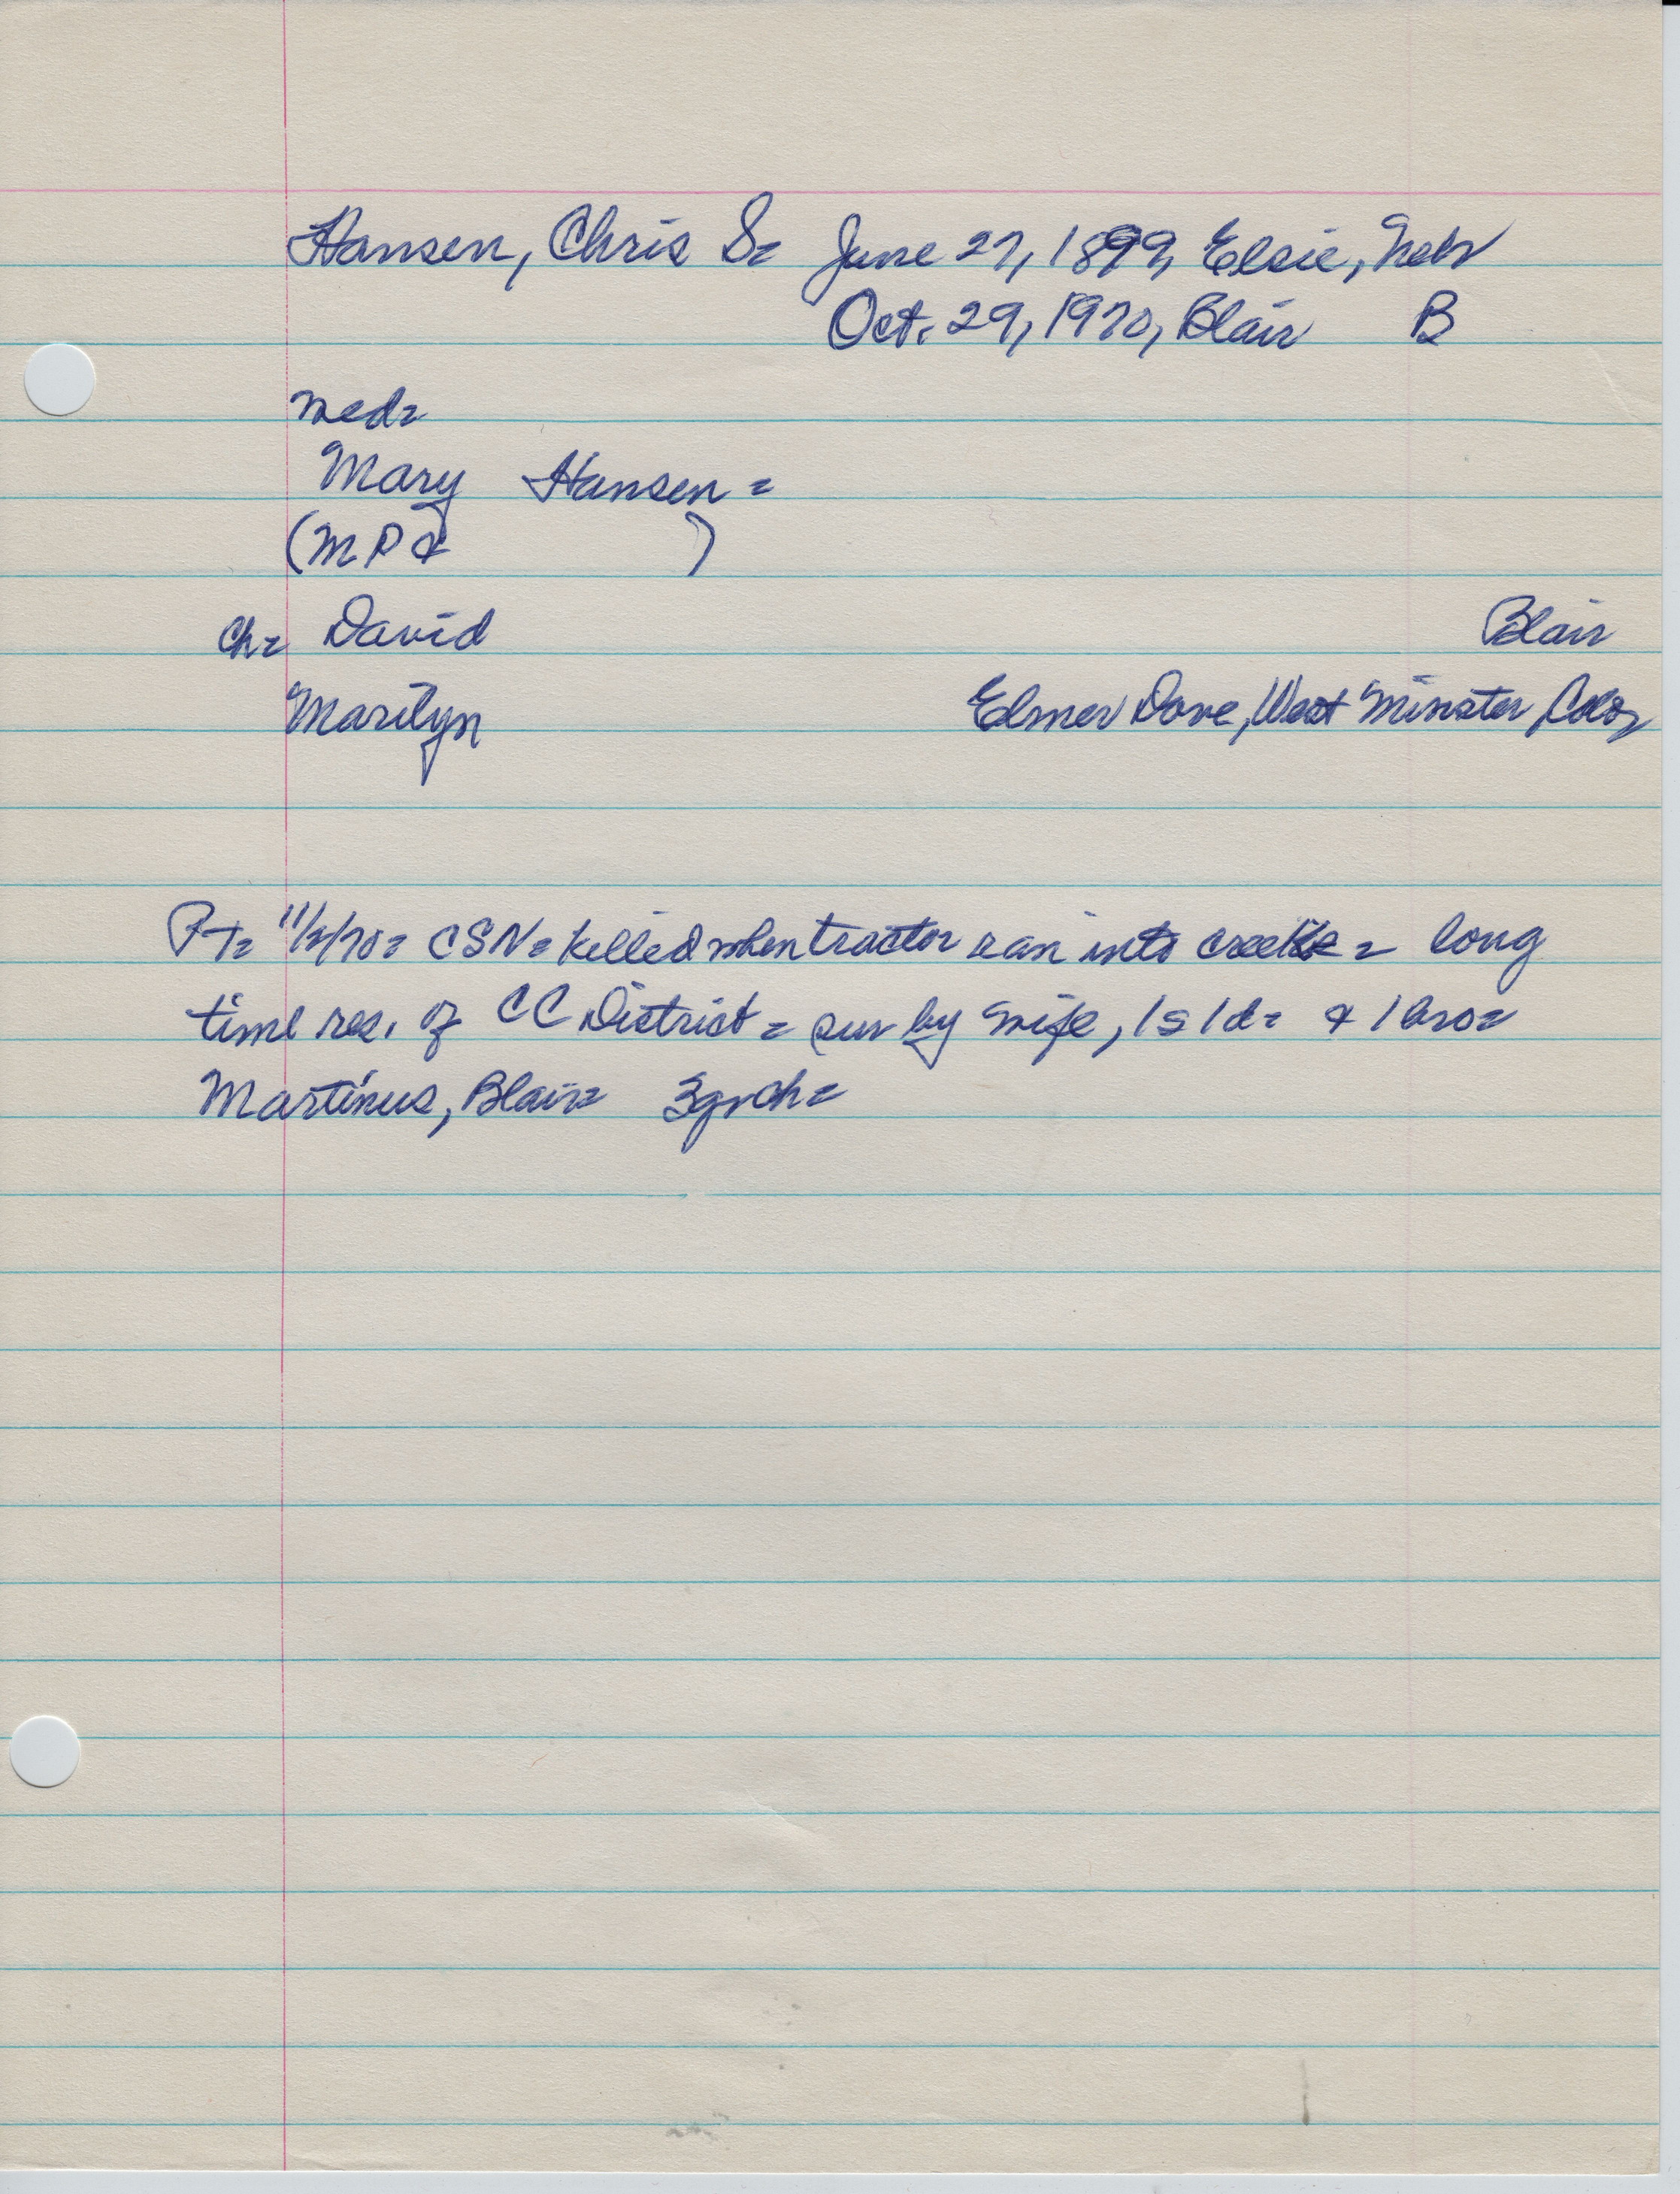 Hansen, Chris S= June 27, 1899, Elsie, Nebr
Oct. 29, 1970, Blair B
med=
Mary Hansen =
(MP & )
Ch= David Blair
Marilyn Elmer Dove, West Minster, Colo,
PT= 11/2/70= CSN= killed when tractor ran into creek = long
time res. of CC District = sur by wife, 1s 1d= & 1 bro=
Martinus, Blair= 3grch=